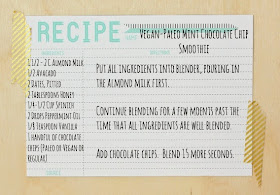 RECIPE
Vegan-Paleo Mint Chocolate Chip
Smoothie
INGREDIENTS
1 1/2 - 2 C Almond Milk
1/2 Avocado
2 Dates, Pitted
2 Tablespoons Honey
1/4-1/2 Cup Spinich
2 Drops Peppermint Oil
1/8 Teaspoon Vanilla
1 handful of Chocolate
chips (Paleo or Vegan or
regular)
Put all ingredients into blender, pouring in
the almond milk first.
Continue blending for a few moments past the
time that all ingredients are well blended.
Add chocolate chips. Blend 15 more seconds.